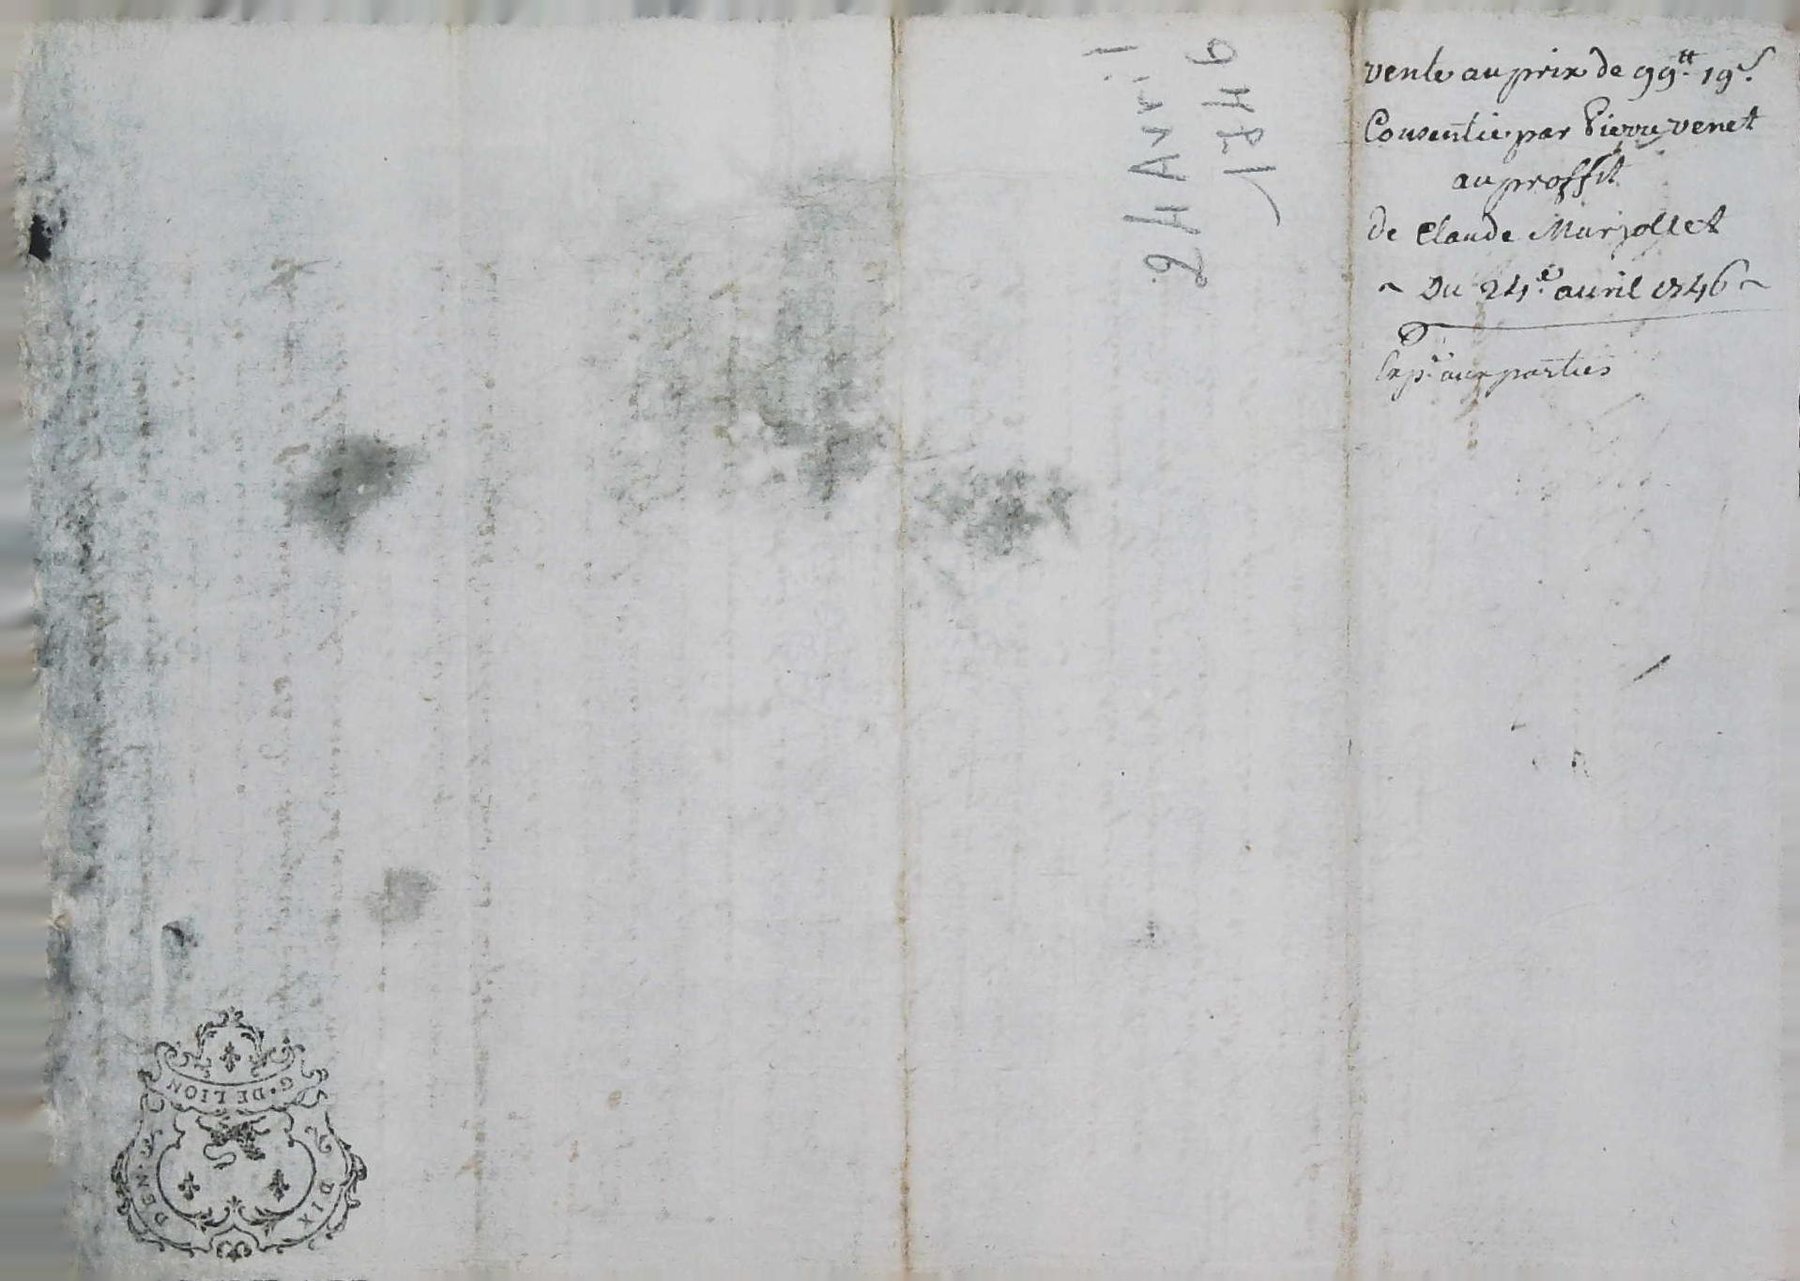 vente au prix de 99tt. 19s.
Consentie par Pierre venet
au proffit
de Claude Murjollet
~ Du 24e. avril 1746 ~
Expe. aux parties
24 Avril
1746
G. DE LION
DEN. DIX